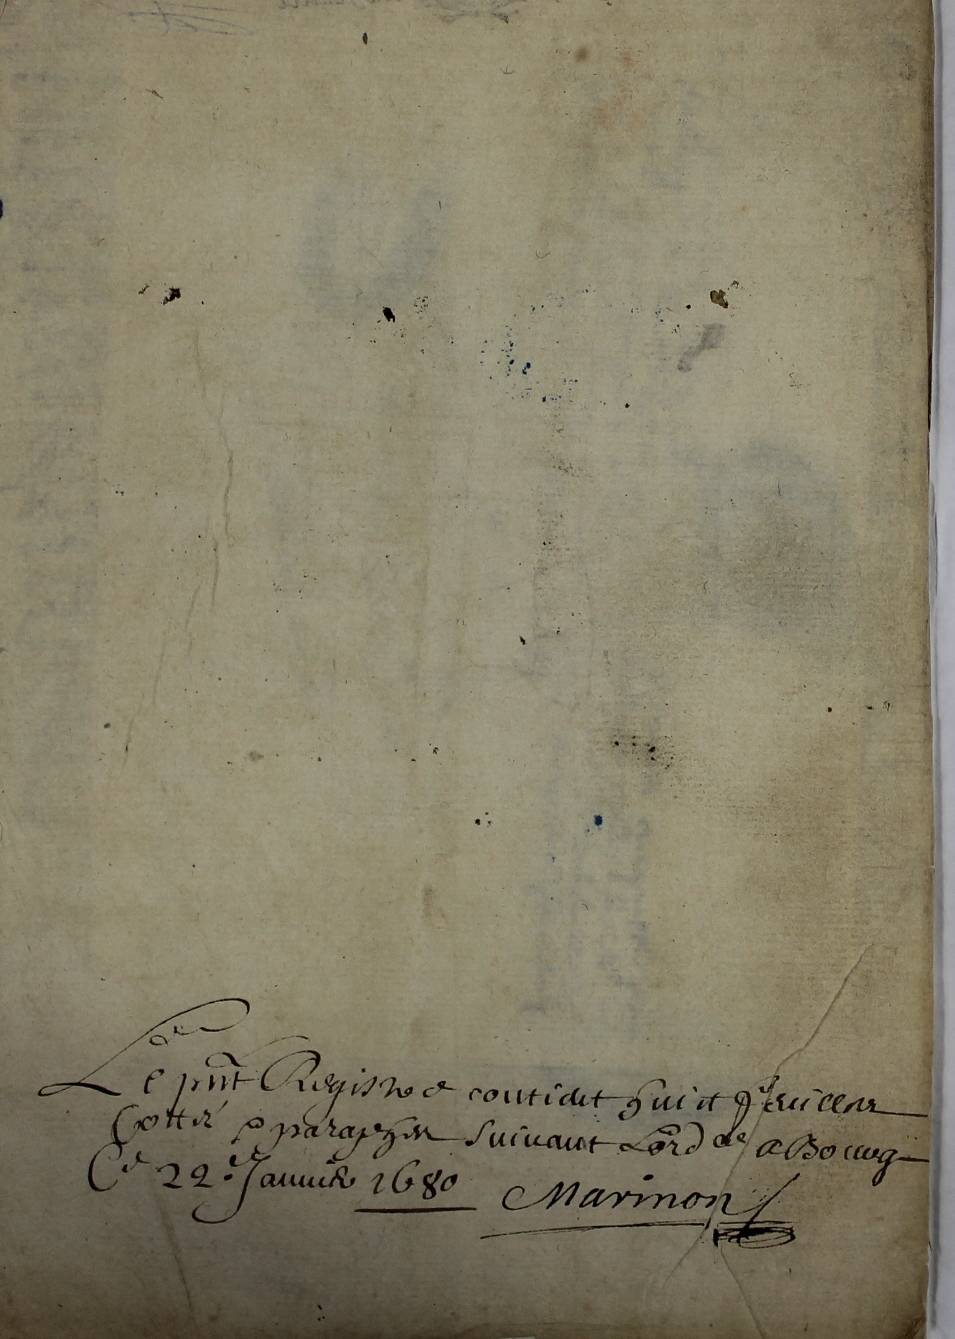 Le pñt Registre contient huit feuillets
Cottés & paraphés suivant Lord.ce a Bourg
Ce 22.e Janvier 1680 Marinon